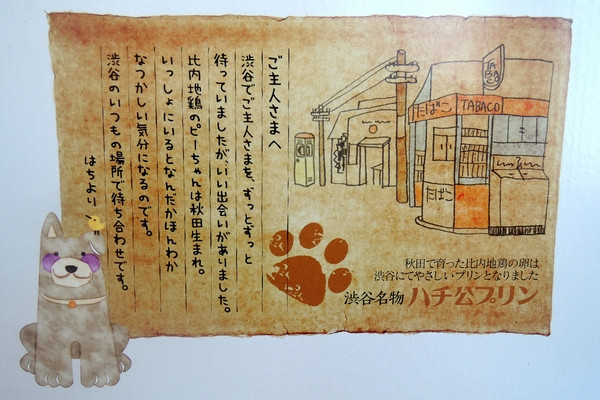 ご主人さまへ
渋谷でご主人さまを、ずっとずっと
待っていましたが、いい出会いがありました。
比内地鶏のピーちゃんは秋田生まれ。
いっしょにいるとなんだかほんわか
なつかしい気分になるのです。
渋谷のいつもの場所で待ち合わせです。
はちより
TABACO
たばこ
TABACO
たばこ
秋田で育った比内地鶏の卵は
渋谷にてやさしいプリンとなりました
渋谷名物 ハチ公プリン